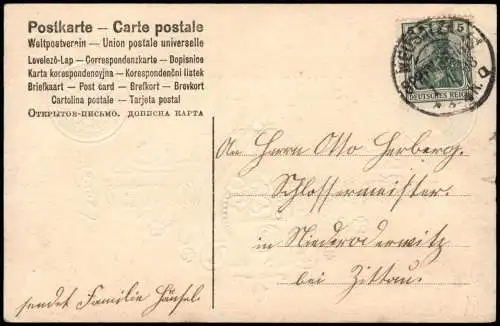 Postkarte — Carte postale
Weltpostverein — Union postale universelle
Levelező-Lap — Correspondenzkarte — Dopisnice
Karta korespondencyjna — Korespondenční lístek
Briefkaart — Post card — Brefkort — Brevkort
Cartolina postale — Tarjeta postal
Открытое-письмо. Дописна карта
5
DEUTSCHES REICH
An Herrn Otto Herberg.
Schlossermeister.
in Niederoderwitz
bei Zittau.
sendet Familie Hänsel.